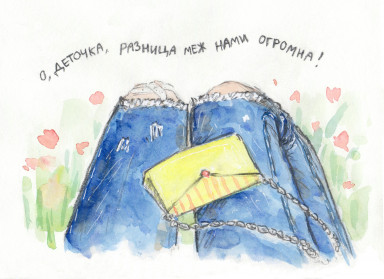 О, ДЕТОЧКА, РАЗНИЦА МЕЖ НАМИ ОГРОМНА!